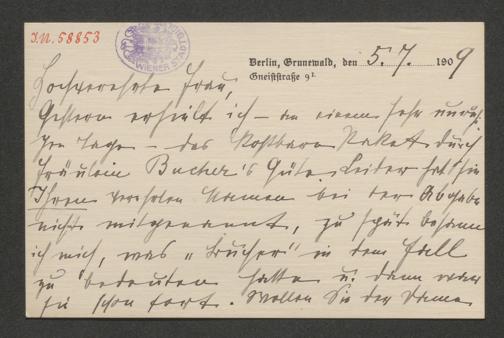 J.N. 58853
WIENER STADT
Berlin, Grunewald, den 5. 7. 1909
Gneiststraße 9 I.
Hochverehrte Frau,
Gestern erhielt ich – an einem sehr unruhi-
gen Tage – das kostbare Paket durch
Fräulein Bucher's Güte. Leider hat sie
Ihren verehrten Namen bei der Abgabe
nicht mitgenannt, zu spät besann
ich mich, was „Bucher" in dem Fall
zu bedeuten hatte u. dann war
sie schon fort. Wollen Sie der Dame